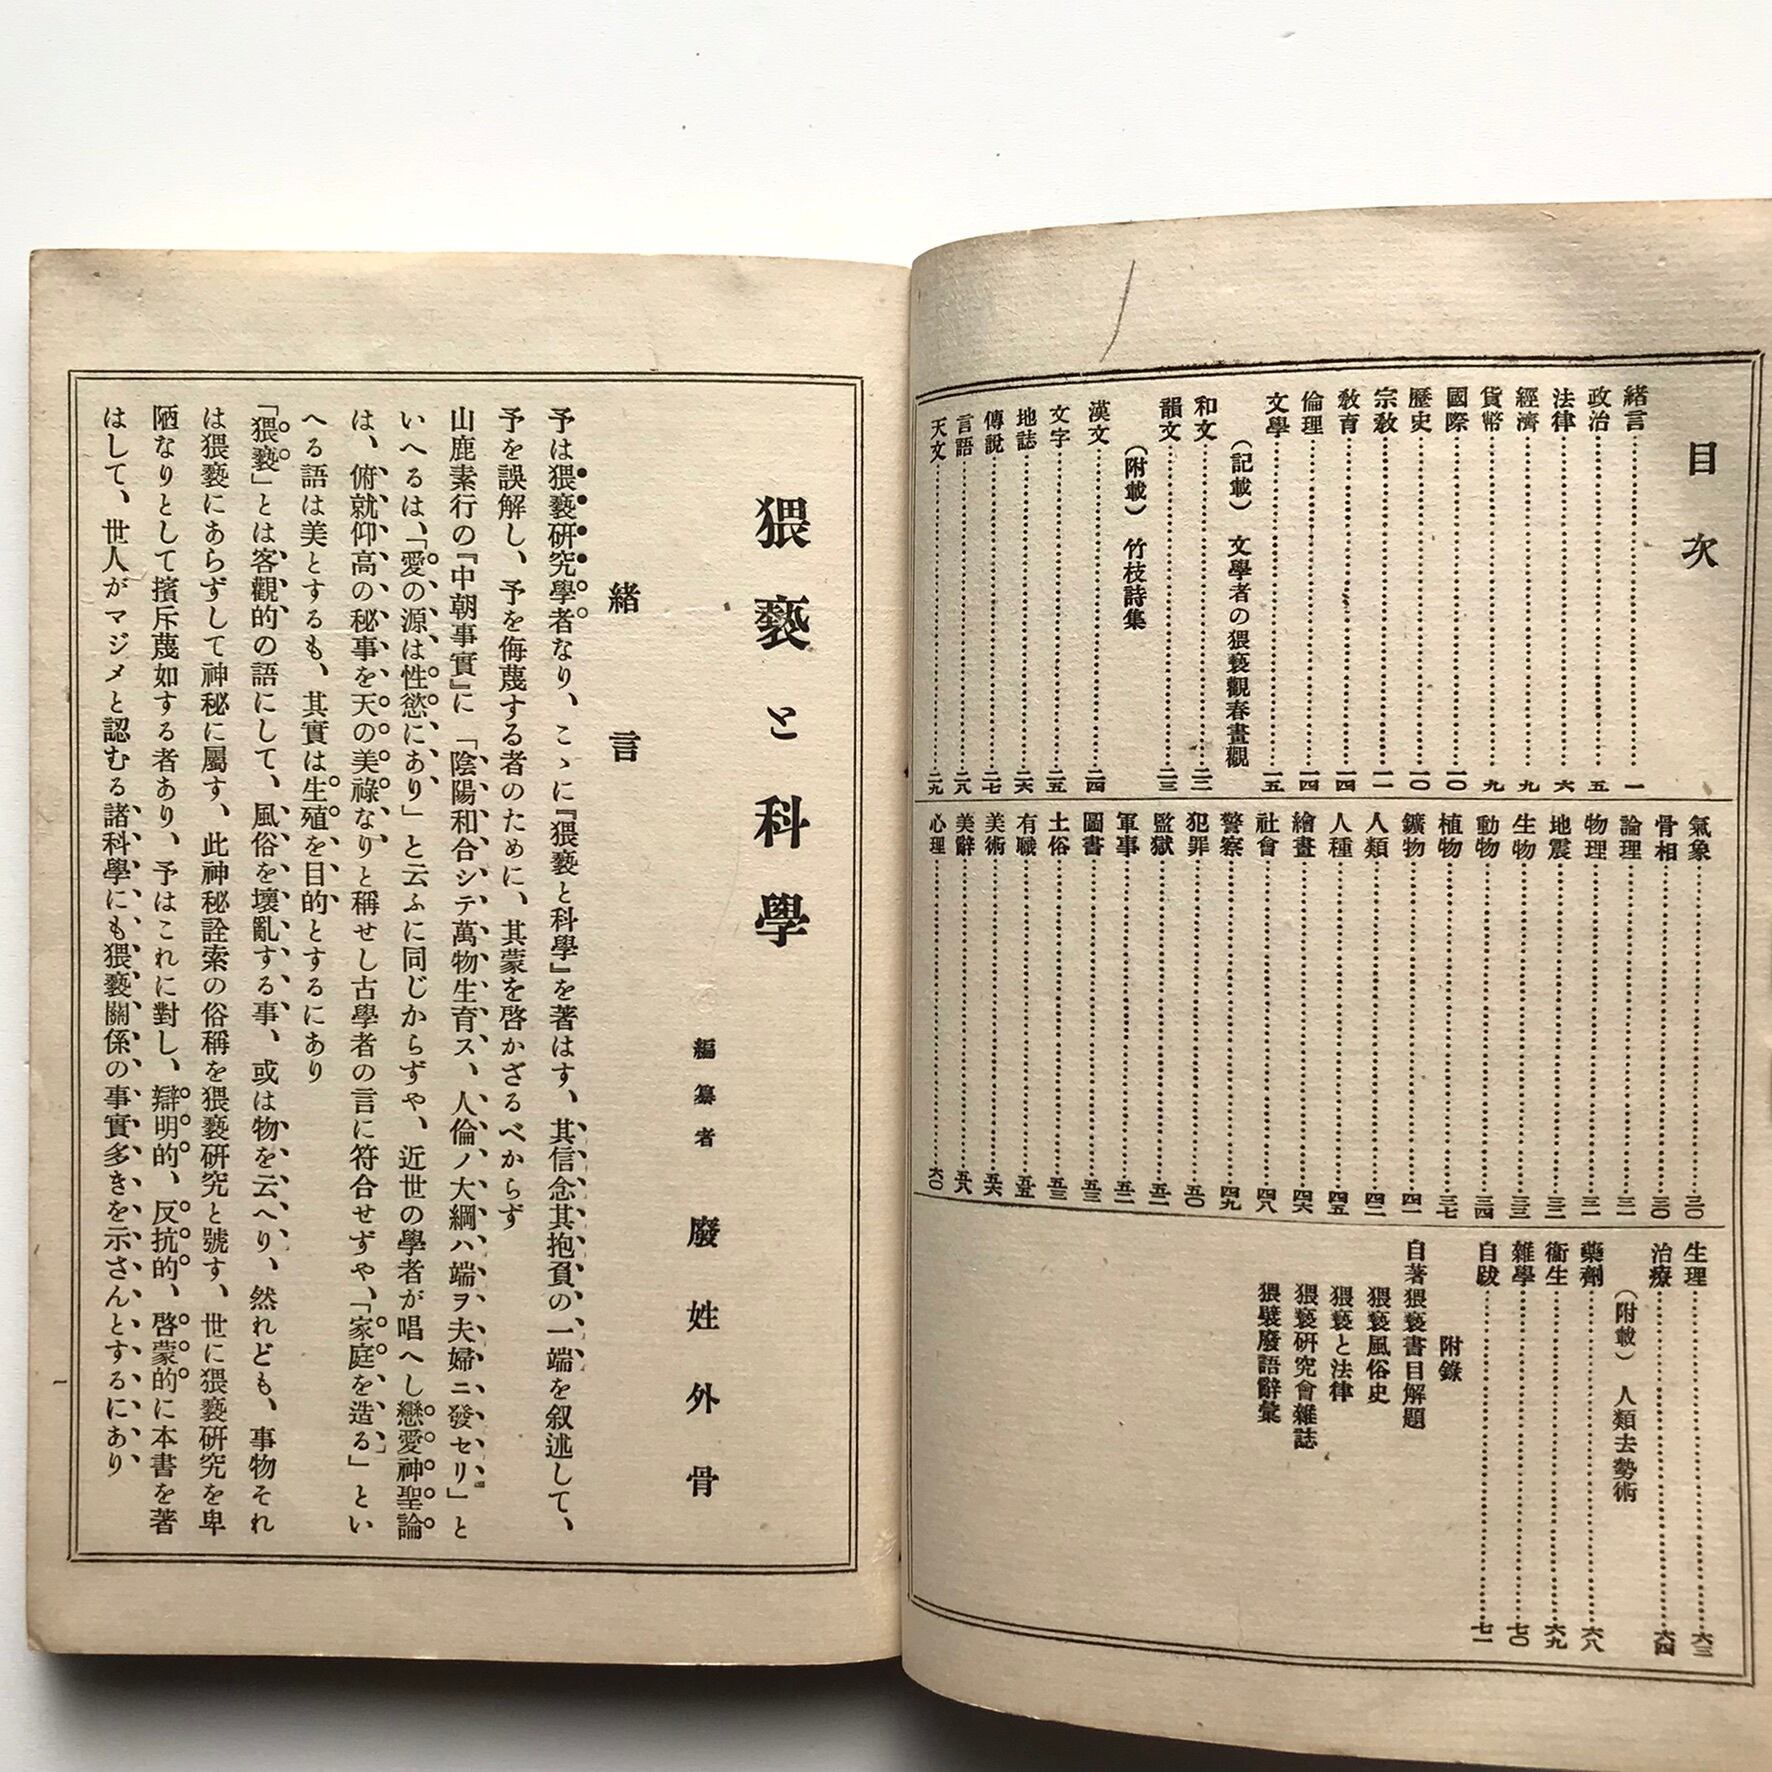 目次
緒言……一
政治……五
法律……六
經濟……九
貨幣……九
國際……一〇
歷史……一〇
宗敎……一一
敎育……一四
倫理……一四
文學……一五
(記載) 文學者の猥褻觀春畫觀
和文……二二
韻文……二三
(附載) 竹枝詩集
漢文……二四
文字……二五
地誌……二六
傳說……二七
言語……二八
天文……二九
氣象……三〇
骨相……三〇
論理……三一
物理……三一
地震……三二
生物……三三
動物……三四
植物……三七
鑛物……四一
人類……四二
人種……四五
繪畫……四六
社會……四八
警察……四九
犯罪……五〇
監獄……五一
軍事……五二
圖書……五三
土俗……五三
有職……五五
美術……五六
美辭……五八
心理……六〇
生理……六三
治療……六四
(附載) 人類去勢術
藥劑……六八
衞生……六九
雜學……七〇
自跋……七一
附錄
自著猥褻書目解題
猥褻風俗史
猥褻と法律
猥褻研究會雜誌
猥褻廢語辭彙
猥褻と科學
編纂者 廢姓外骨
緒言
予は猥褻研究學者なり、こゝに『猥褻と科學』を著はす、其信念其抱負の一端を叙述して、
予を誤解し、予を侮蔑する者のために、其蒙を啓かざるべからず
山鹿素行の『中朝事實』に「陰陽和合シテ萬物生育ス、人倫ノ大綱ハ端ヲ夫婦ニ發セリ」と
いへるは、「愛の源は性慾にあり」と云ふに同じからずや、近世の學者が唱へし戀愛神聖論
は、俯就仰高の秘事を天の美祿なりと稱せし古學者の言に符合せずや、「家庭を造る」とい
へる語は美とするも、其實は生殖を目的とするにあり
「猥褻」とは客觀的の語にして、風俗を壞亂する事、或は物を云へり、然れども、事物それ
は猥褻にあらずして神秘に屬す、此神秘詮索の俗稱を猥褻研究と號す、世に猥褻研究を卑
陋なりとして擯斥蔑如する者あり、予はこれに對し、辯明的、反抗的、啓蒙的に本書を著
はして、世人がマジメと認むる諸科學にも猥褻關係の事實多きを示さんとするにあり
一